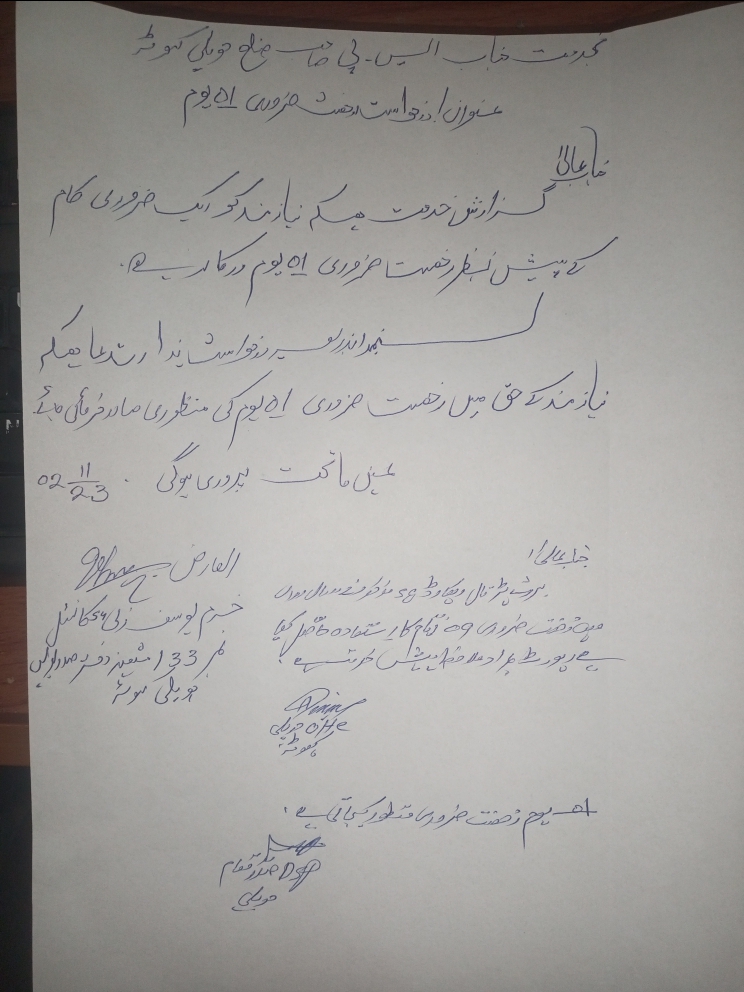 بخدمت جناب ایس۔پی صاحب ضلع حویلی کہوٹہ
عنوان: درخواست رخصت ضروری 01 یوم
جناب عالیٰ!
گزارش خدمت ہیکہ نیازمند کو ایک ضروری کام
کے پیش نظر رخصت ضروری 01 یوم درکار ہے۔
لہذا بذریعہ درخواست ہذا استدعا ہیکہ
نیازمند کے حق میں رخصت ضروری 01 یوم کی منظوری صادر فرمائی جائے
عین ماتحت پروری ہوگی۔ 02-11-23
العارض
خرم یوسف کانسٹیبل
نمبر 133 متعینہ دفتر صدر پولیس
حویلی کہوٹہ
جناب عالی!
بروئے پڑتال ریکارڈ مذکور نے سال رواں
میں رخصت ضروری 09 یوم کا استفادہ حاصل کیا
ہے رپورٹ بمراد ملاحظہ پیش خدمت ہے۔
OHC حویلی
کہوٹہ
01 یوم رخصت ضروری منظور کی جاتی ہے۔
DSP
حویلی